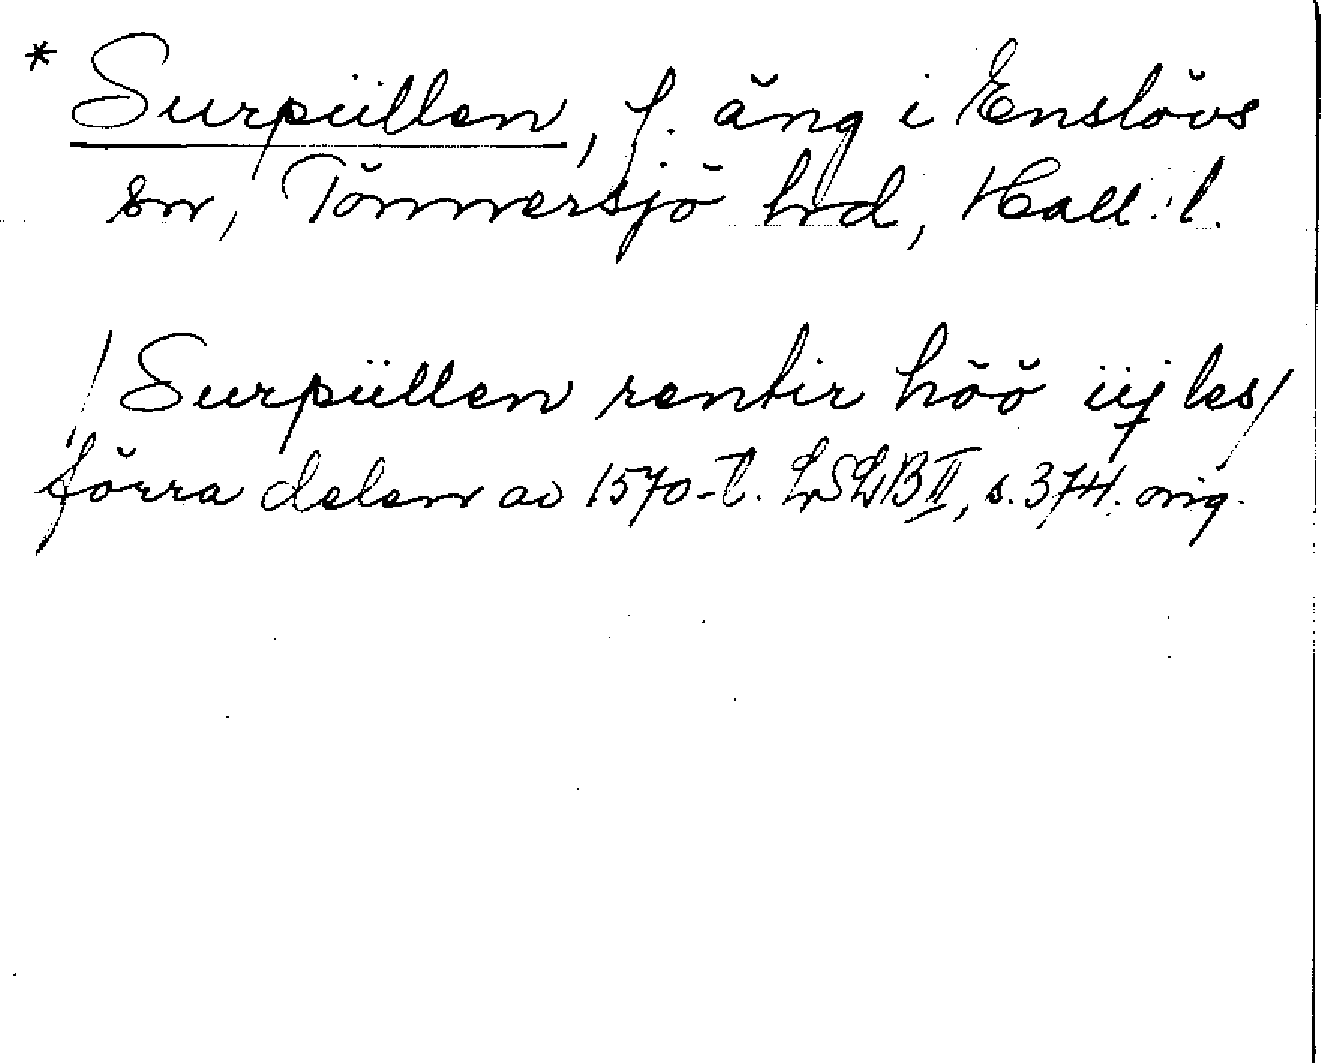 * Surpüllen, f. äng i Enslövs
sn, Tönnersjö hd, Hall. l.
/Surpüllen rentir höö iij les/
förra delen av 1570-t. LSLB II, s. 374. orig.